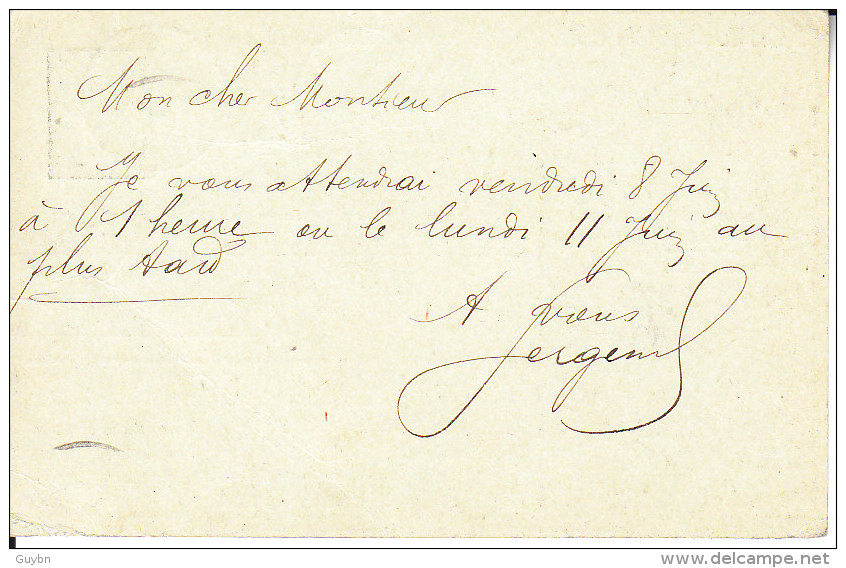 Mon cher Monsieur
Je vous attendrai vendredi 8 Juin
à 1 heure ou le lundi 11 Juin au
plus tard
A vous
Guybn
www.delcampe.net